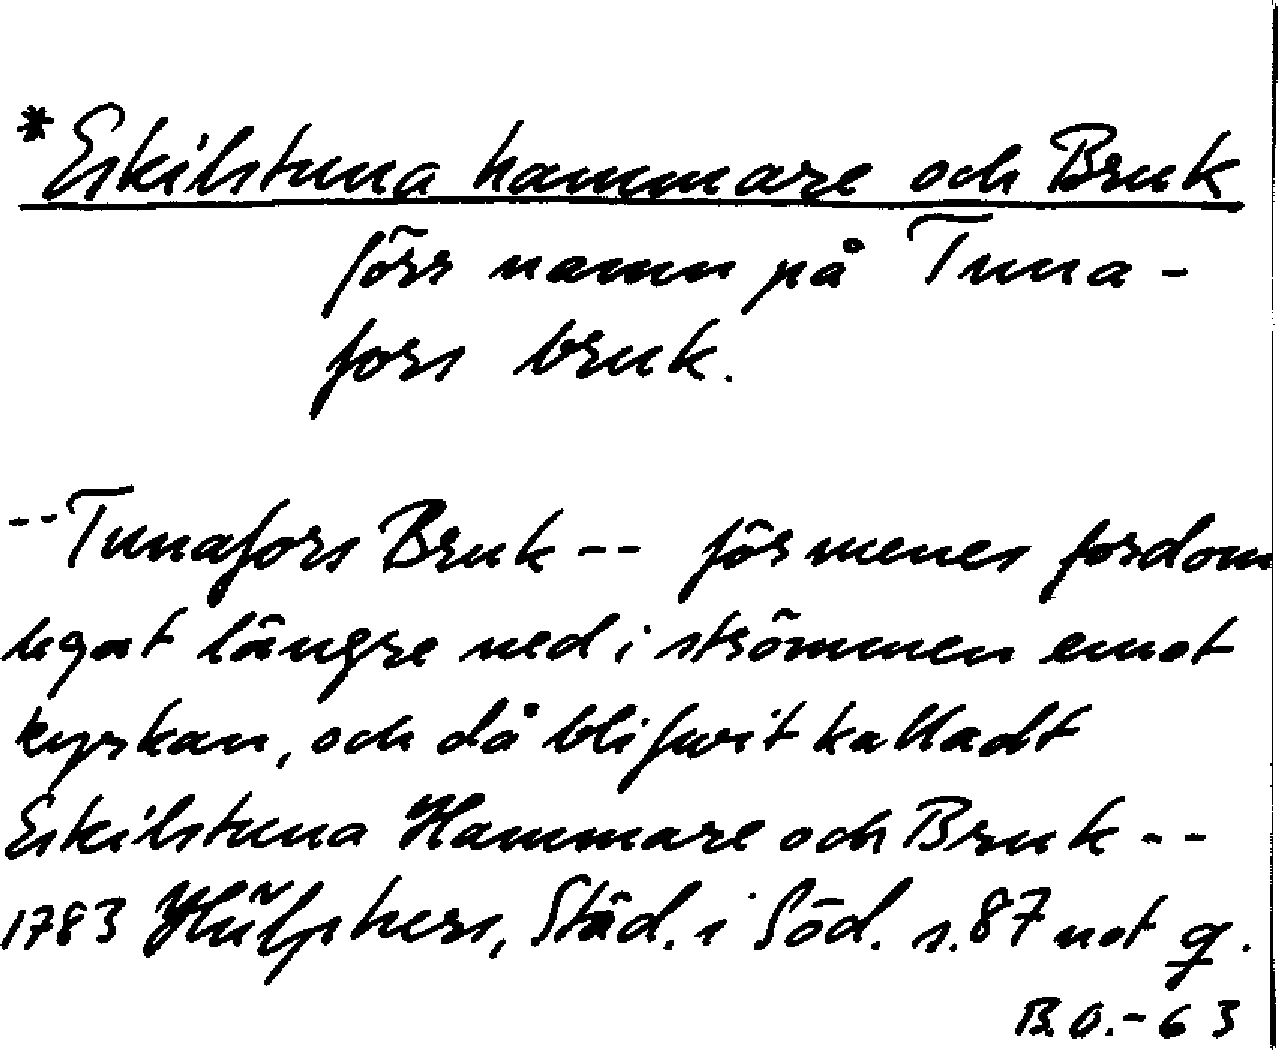 *Eskilstuna hammare och Bruk
förr namn på Tuna-
fors bruk.
--Tunafors Bruk-- förmenes fordom
legat längre ned i strömmen emot
kyrkan, och då blifwit kalladt
Eskilstuna Hammare och Bruk--
1783 Hülphers, Städ. i Söd. s.87 not q.
B.O.-63